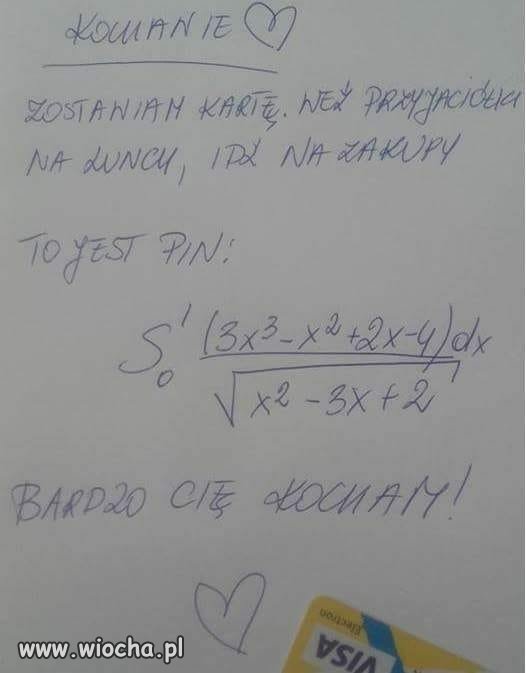 KOCHANIE ♡
ZOSTAWIAM KARTĘ. WEŹ PRZYJACIÓŁKI
NA LUNCH, IDŹ NA ZAKUPY
TO JEST PIN:
∫₀¹ (3x³-x²+2x-4)dx / √(x²-3x+2)
BARDZO CIĘ KOCHAM!
♡
www.wiocha.pl
Electron
VISA